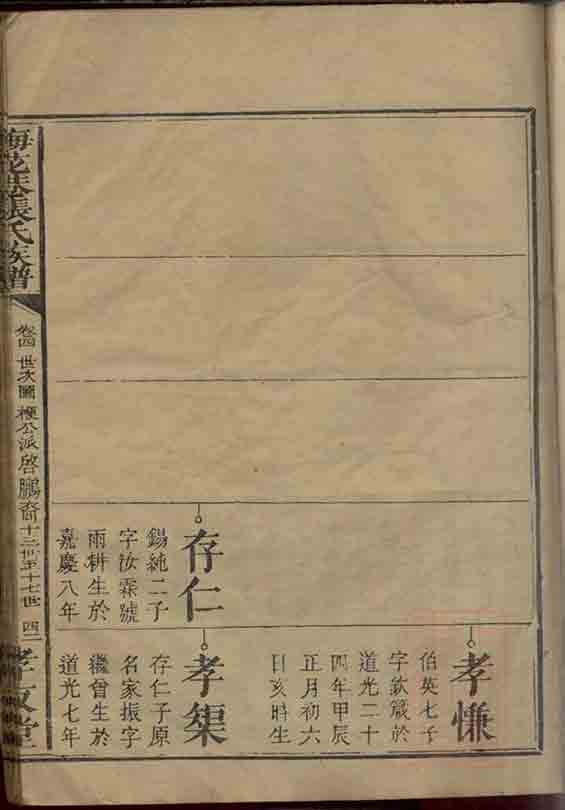 存仁
錫純二子
字汝霖號
雨耕生於
嘉慶八年
孝慊
伯英七子
字欽箴於
道光二十
四年甲辰
正月初六
日亥時生
孝渠
存仁子原
名家振字
繼曾生於
道光七年
張氏族譜
卷四 世次圖 公派啓鵬裔十三世至十七世 四二
孝友堂